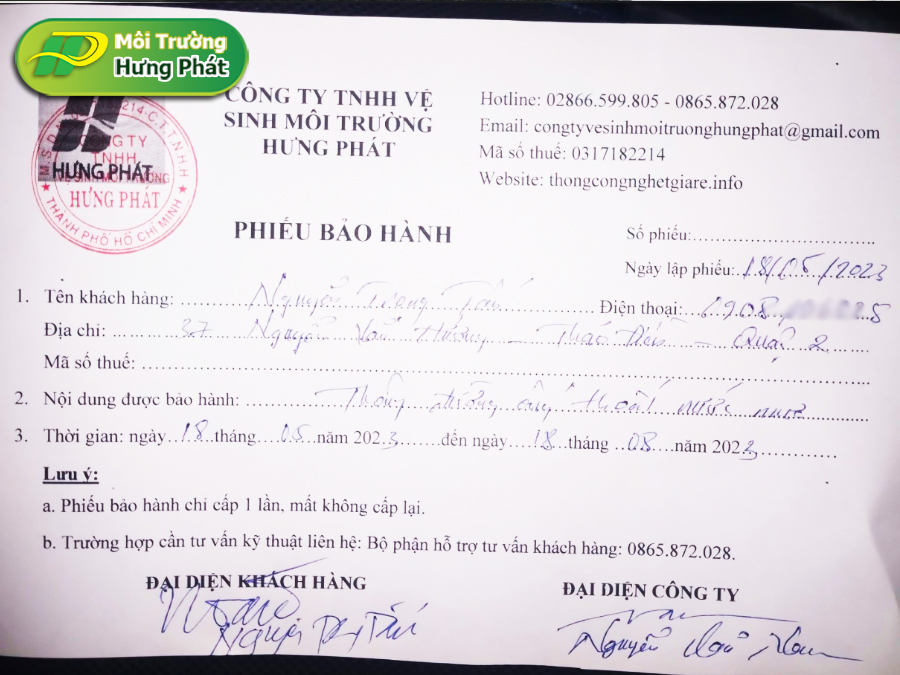 Môi Trường
Hưng Phát
CÔNG TY TNHH VỆ
SINH MÔI TRƯỜNG
HƯNG PHÁT
Hotline: 02866.599.805 - 0865.872.028
Email: congtyvesinhmoitruonghungphat@gmail.com
Mã số thuế: 0317182214
Website: thongcongnghetgiare.info
CÔNG TY
TNHH
HƯNG PHÁT
VỆ SINH MÔI TRƯỜNG
HƯNG PHÁT
THÀNH PHỐ HỒ CHÍ MINH
PHIẾU BẢO HÀNH
Số phiếu:
Ngày lập phiếu: 18/05/2023
1. Tên khách hàng: Nguyễn Tấn
Điện thoại:
Địa chỉ: 37 Nguyễn Văn Hưởng – Thảo Điền – Quận 2
Mã số thuế:
2. Nội dung được bảo hành: Thông đường ống thoát nước mưa
3. Thời gian: ngày 18 tháng 05 năm 2023 đến ngày 18 tháng 08 năm 2023
Lưu ý:
a. Phiếu bảo hành chỉ cấp 1 lần, mất không cấp lại.
b. Trường hợp cần tư vấn kỹ thuật liên hệ: Bộ phận hỗ trợ tư vấn khách hàng: 0865.872.028.
ĐẠI DIỆN KHÁCH HÀNG
ĐẠI DIỆN CÔNG TY
Nguyễn
Nguyễn Nam